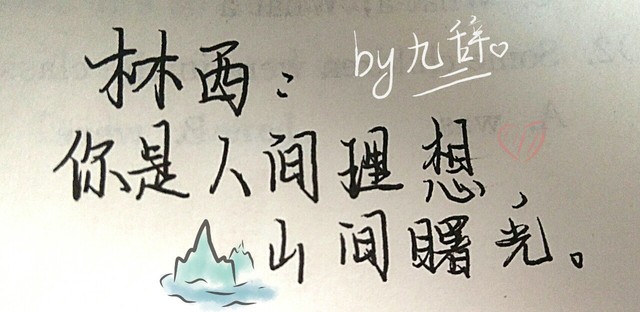 林西：
by九辞
你是人间理想，
山间曙光。